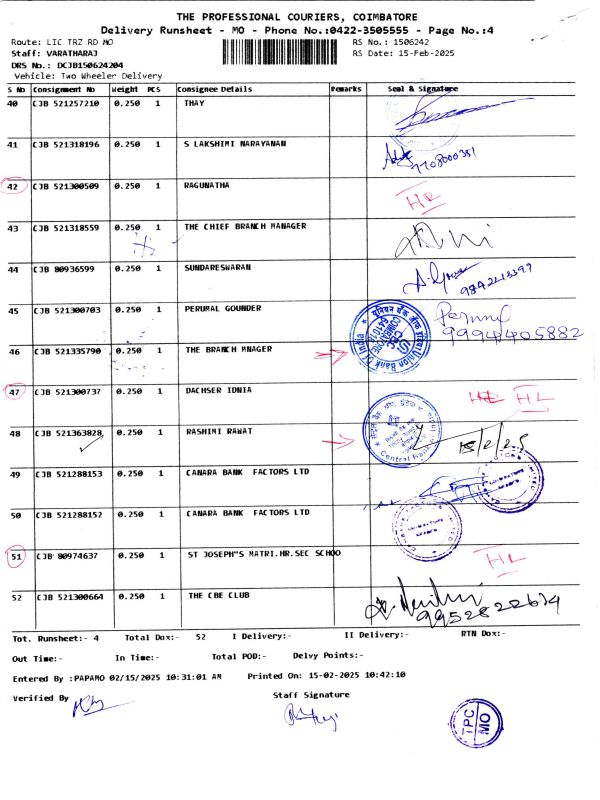 THE PROFESSIONAL COURIERS, COIMBATORE
Delivery Runsheet - MO - Phone No.:0422-3505555 - Page No.:4
Route: LIC TRZ RD MO RS No.: 1506242
Staff: VARATHARAJ RS Date: 15-Feb-2025
DRS No.: DCJB150624204
Vehicle: Two Wheeler Delivery
S No Consignment No Weight PCS Consignee Details Remarks Seal & Signature
40 CJB 521257210 0.250 1 THAY
41 CJB 521318196 0.250 1 S LAKSHIMI NARAYANAN
7708000351
42 CJB 521300509 0.250 1 RAGUNATHA HL
43 CJB 521318559 0.250 1 THE CHIEF BRANCH MANAGER
44 CJB 80936599 0.250 1 SUNDARESWARAN
45 CJB 521300703 0.250 1 PERUMAL GOUNDER
9994405882
46 CJB 521335790 0.250 1 THE BRANCH MNAGER
Union Bank Of India
47 CJB 521300737 0.250 1 DACHSER IDNIA HL HL
48 CJB 521363828 0.250 1 RASHIMI RAWAT 15/2/25
Central Bank
49 CJB 521288153 0.250 1 CANARA BANK FACTORS LTD
50 CJB 521288152 0.250 1 CANARA BANK FACTORS LTD
51 CJB 80974637 0.250 1 ST JOSEPH"S MATRI.HR.SEC SCHOO HL
52 CJB 521300664 0.250 1 THE CBE CLUB
Tot. Runsheet:- 4 Total Dox:- 52 I Delivery:- II Delivery:- RTN Dox:-
Out Time:- In Time:- Total POD:- Delvy Points:-
Entered By :PAPAMO 02/15/2025 10:31:01 AM Printed On: 15-02-2025 10:42:10
Verified By Staff Signature
TPC
MO